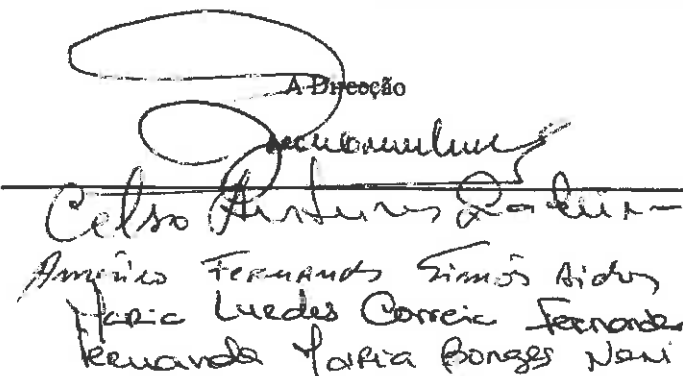 A Direcção
Celso Antunes
Américo Fernando Simões Aidos
Maria Lurdes Correia Fernandes
Fernanda Maria Borges